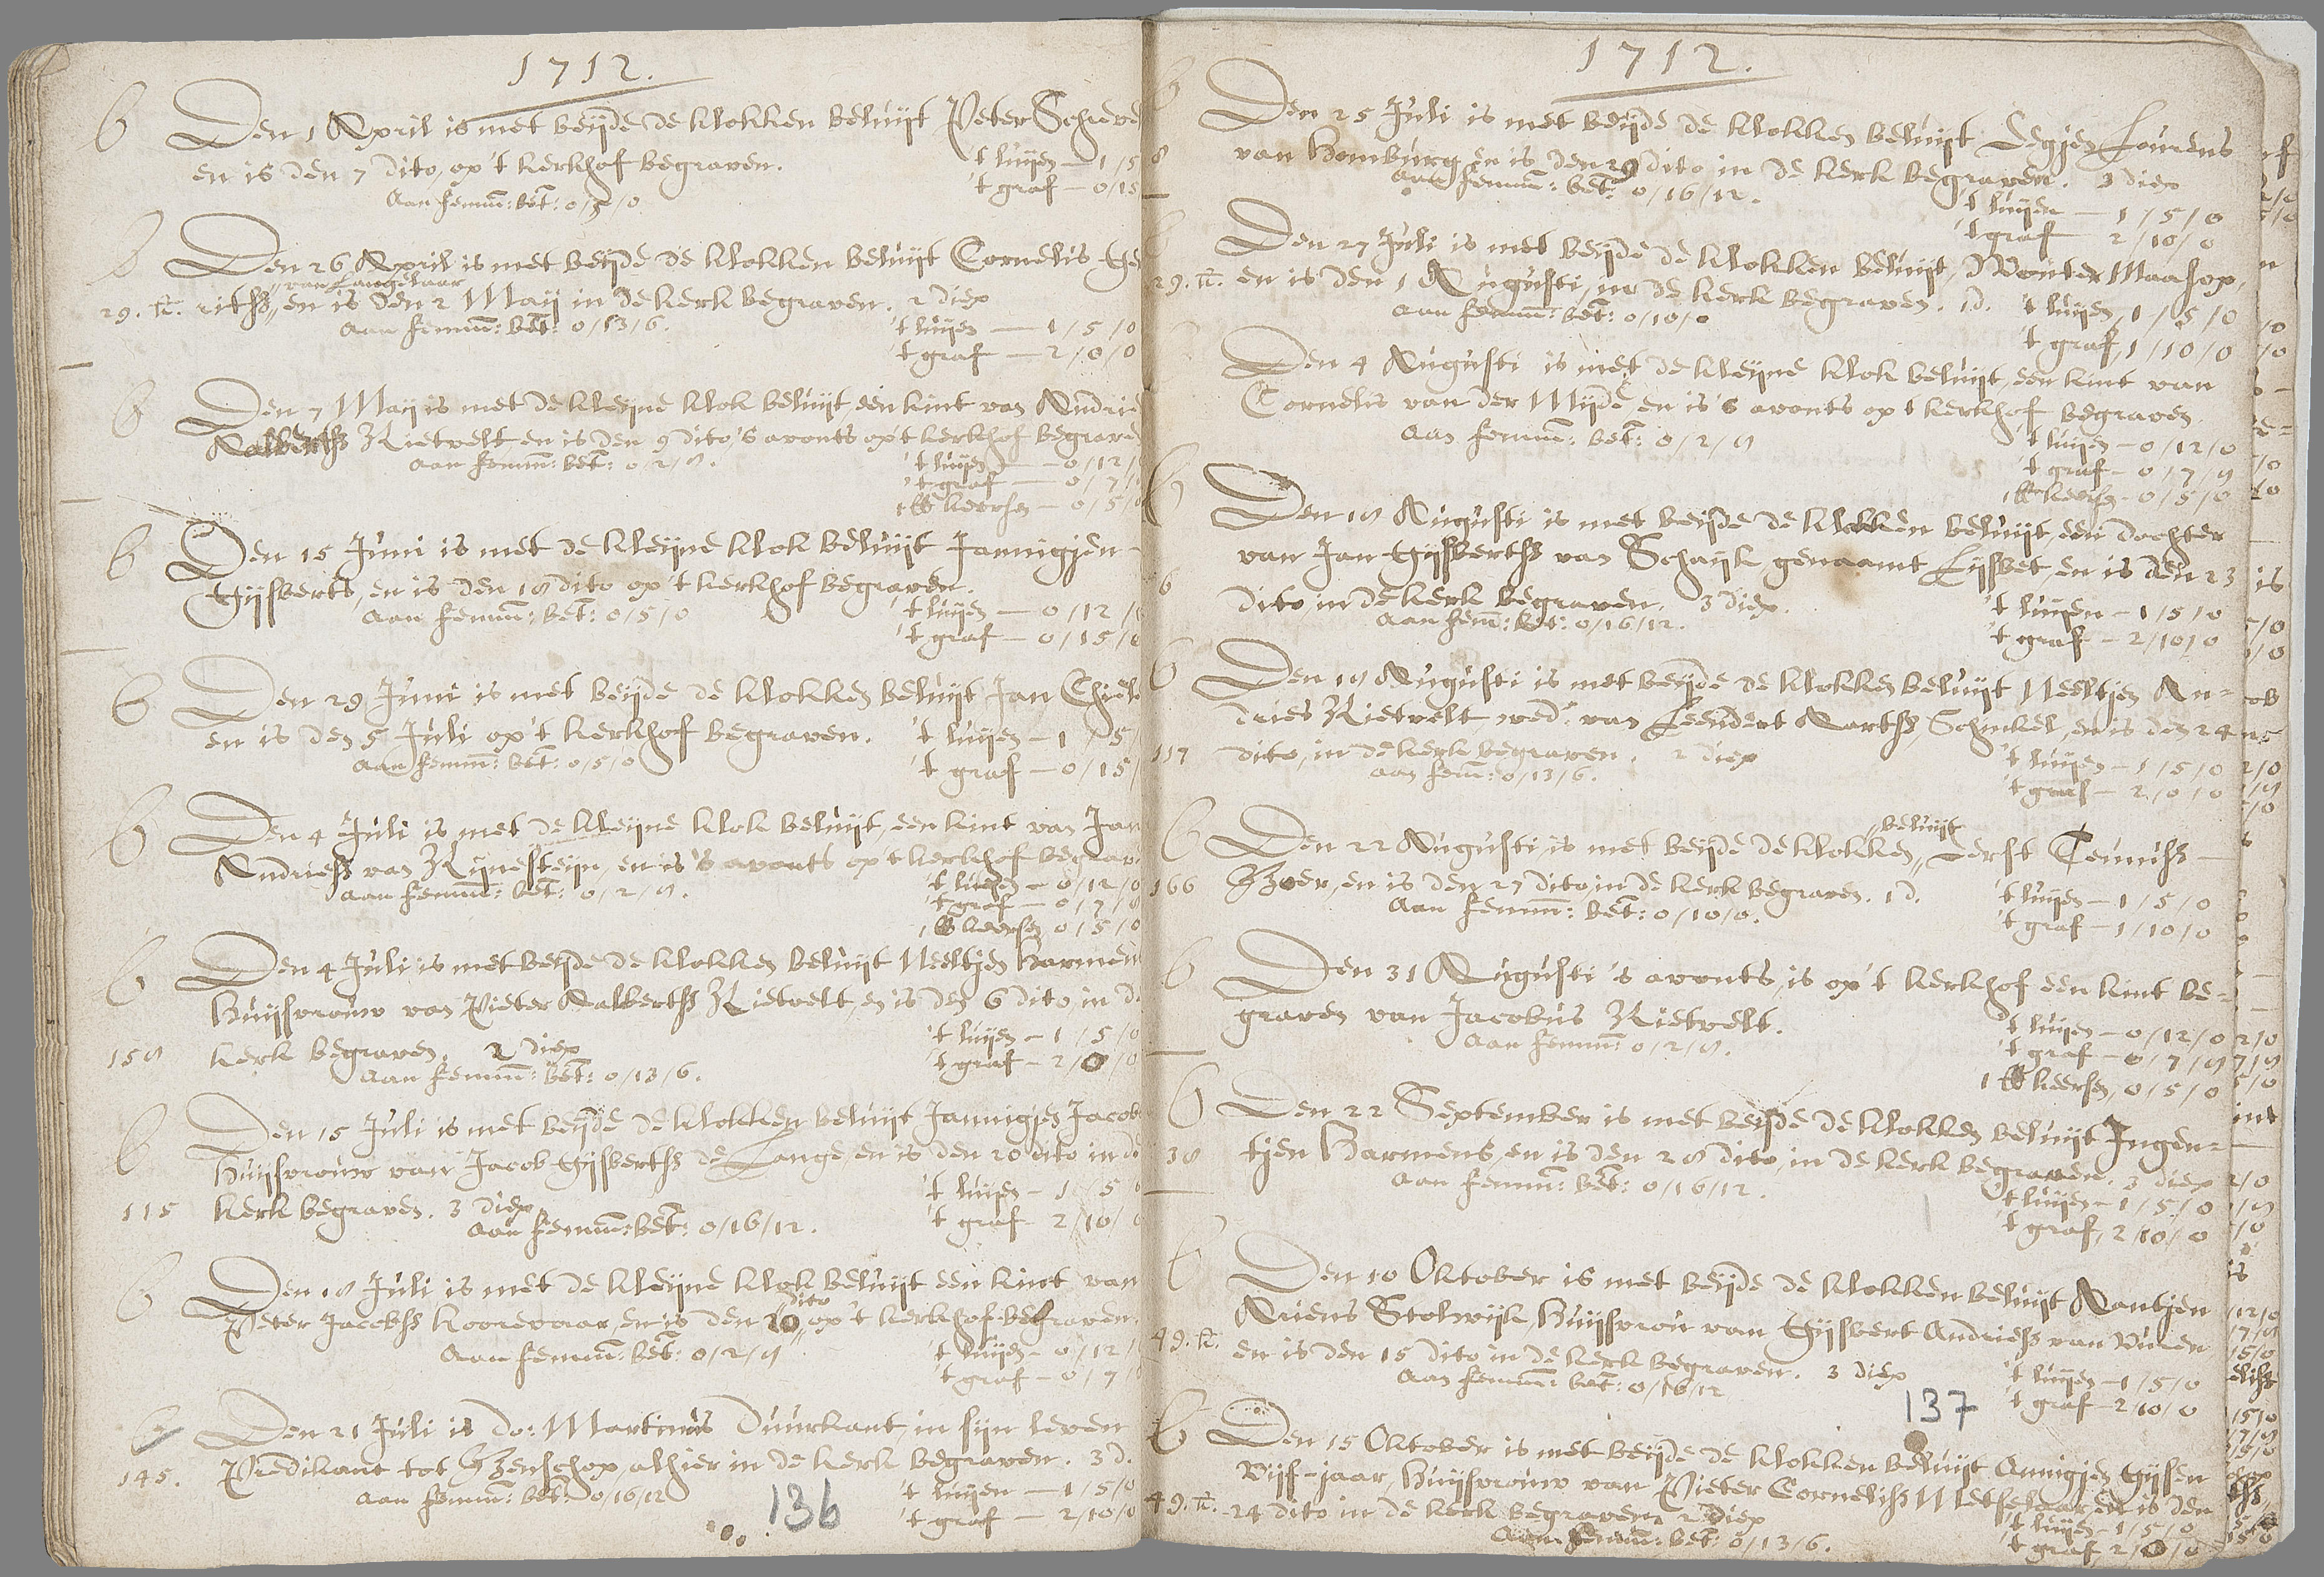 1712.
b Den 1 April is met beijde de klokken beluijt Peter Scheve
en is den 7 dito, op 't kerkhof begraven. 't luijen — 1/5
aan femm: bet: 0/5/0 't graf — 0/15
b Den 26 April is met beijde de klokken beluijt Cornelis Ge
van Langelaar
29. k. ritsz, en is den 2 Maij in de kerk begraven. 2 diep
aan femm: bet: 0/13/6. 't luijen — 1/5/0
't graf — 2/0/0
b Den 7 Maij is met de kleijne klok beluijt, een kint van Andrie
Aalbertsz Rietvelt, en is den 9 dito 's avonts op 't kerkhof begrave
aan femm: bet: 0/2/8. 't luijen — 0/12/
't graf — 0/7/
1 lb keersen — 0/5/0
b Den 15 Juni is met de kleijne klok beluijt Jannigjen
Gijsberts, en is den 18 dito op 't kerkhof begraven.
aan femm: bet: 0/5/0 't luijen — 0/12/
't graf — 0/15/0
b Den 29 Juni is met beijde de klokken beluijt Jan Chiel
en is den 5 Juli op 't kerkhof begraven. 't luijen — 1/5/
aan femm: bet: 0/5/0 't graf — 0/15/
b Den 4 Juli is met de kleijne klok beluijt, een kint van Jan
Andriesz van Rijnesteijn, en is 's avonts op 't kerkhof begrav
aan femm: bet: 0/2/8. 't luijen — 0/12/0
't graf — 0/7/8
1 lb keersen 0/5/0
b Den 4 Juli is met beijde de klokken beluijt Neeltjen Harmen
huijsvrouw van Pieter Aalbertsz Rietvelt, en is den 6 dito, in d
158 kerk begraven. 2 diep 't luijen — 1/5/0
aan femm: bet: 0/13/6. 't graf — 2/0/0
b Den 15 Juli is met beijde de klokken beluijt Jannigjen Jacob
huijsvrouw van Jacob Gijsbertsz de Lange, en is den 20 dito in d
115 kerk begraven. 3 diep 't luijen — 1/5
aan femm: bet: 0/16/12. 't graf — 2/10/
b Den 18 Juli is met de kleijne klok beluijt een kint van
dito
Peter Jacobsz Koorevaar, en is den 20 op 't kerkhof begraven.
aan femm: bet: 0/2/8 't luijen — 0/12/
't graf — 0/7/
b Den 21 Juli is do: Martinus Duurkant, in sijn leven
145. Predikant tot IJzenschop, alhier in de kerk begraven. 3 d.
aan femm: bet: 0/16/12 't luijen — 1/5/0
't graf — 2/10/0
136
1712.
b Den 25 Juli is met beijde de klokken beluijt Eegjen Lourens
8 van Homburg en is den 29 dito in de kerk begraven. 3 diep
aan femm: bet: 0/16/12. 't luijen — 1/5/0
't graf 2/10/0
Den 27 Juli is met beijde de klokken beluijt, Wouter Maasop,
29. k. en is den 1 Augusti, in de kerk begraven. 1 d. 't luijen, 1/5/0
aan femm: bet: 0/10/0 't graf, 1/10/0
Den 4 Augusti is met de kleijne klok beluijt, een kint van
Cornelis van der Mijde, en is 's avonts op 't kerkhof begraven
aan femm: bet: 0/2/8 't luijen — 0/12/0
't graf — 0/7/8
1 lb keersen — 0/5/0
b Den 18 Augusti is met beijde de klokken beluijt, een dochter
van Jan Gijsbertsz van Schaijk, genaamt Lijsbet, en is den 23
6 dito, in de kerk begraven. 3 diep. 't luijen — 1/5/0
aan femm: bet: 0/16/12. 't graf — 2/10/0
b Den 18 Augusti is met beijde de klokken beluijt Neeltjen An-
dries Rietvelt, wed.e van Leendert Aartsz Schinkel, en is den 24
117 dito, in de kerk begraven. 2 diep 't luijen — 1/5/0
aan femm: 0/13/6. 't graf — 2/0/0
beluijt
b Den 22 Augusti, is met beijde de klokken, Eerst Teunisz —
166 IJzer, en is den 27 dito in de kerk begraven. 1 d. 't luijen — 1/5/0
aan femm: bet: 0/10/0. 't graf — 1/10/0
b Den 31 Augusti 's avonts, is op 't kerkhof een kint be-
graven van Jacobus Rietvelt. 't luijen — 0/12/0
aan femm: 0/2/8. 't graf — 0/7/8
1 lb keersen, 0/5/0
b Den 22 September is met beijde de klokken beluijt Ingen-
38 tjen Harmens, en is den 28 dito, in de kerk begraven. 3 diep
aan femm: bet: 0/16/12. 't luijen — 1/5/0
't graf, 2/10/0
b Den 10 Oktober is met beijde de klokken beluijt Aantjen
Ariens Stolwijk, huijsvrou van Gijsbert Andriesz van Vuren
49. k. en is den 15 dito in de kerk begraven. 3 diep 't luijen — 1/5/0
aan femm: bet: 0/16/12 't graf 2/10/0
137
b Den 15 Oktober is met beijde de klokken beluijt Annigjen Gijsen
Vijf-jaar, huijsvrouw van Pieter Cornelisz Metselaar, en is den
49. k. 24 dito in de kerk begraven. 2 diep 't luijen — 1/5/0
aan femm: bet: 0/13/6. 't graf 2/0/0